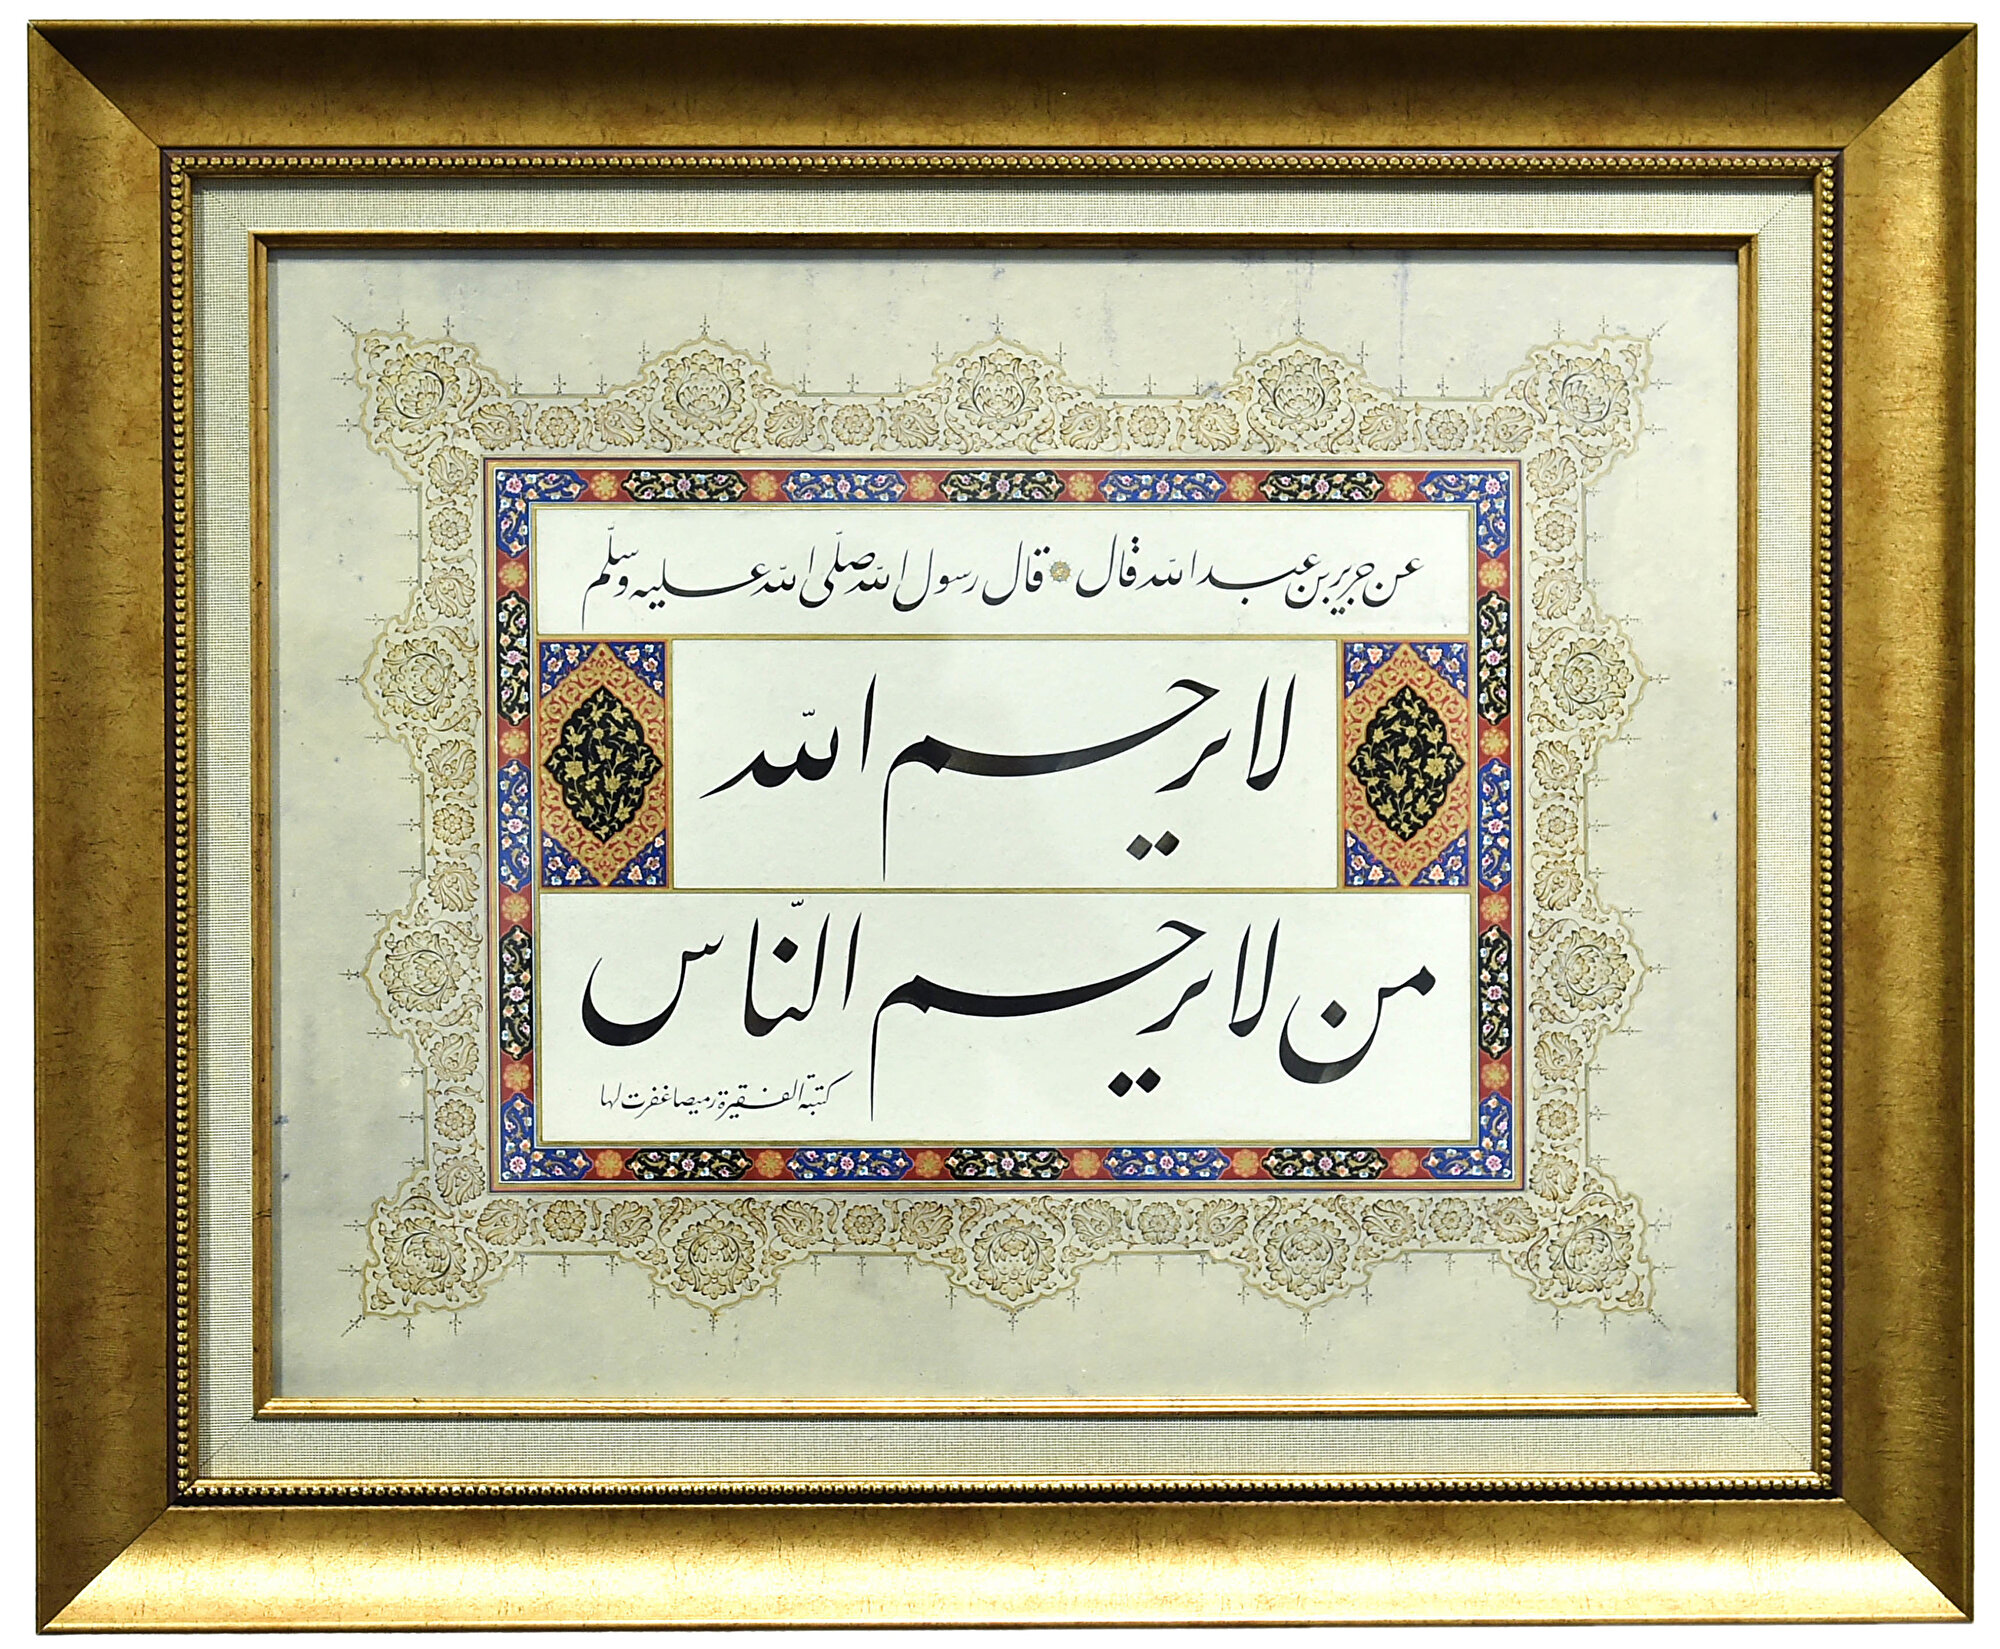 عن جرير بن عبد الله قال قال رسول الله صلّى الله عليه وسلّم
لا يرحم الله
من لا يرحم النّاس
كتبة الفقيرة رميصا غفرت لها